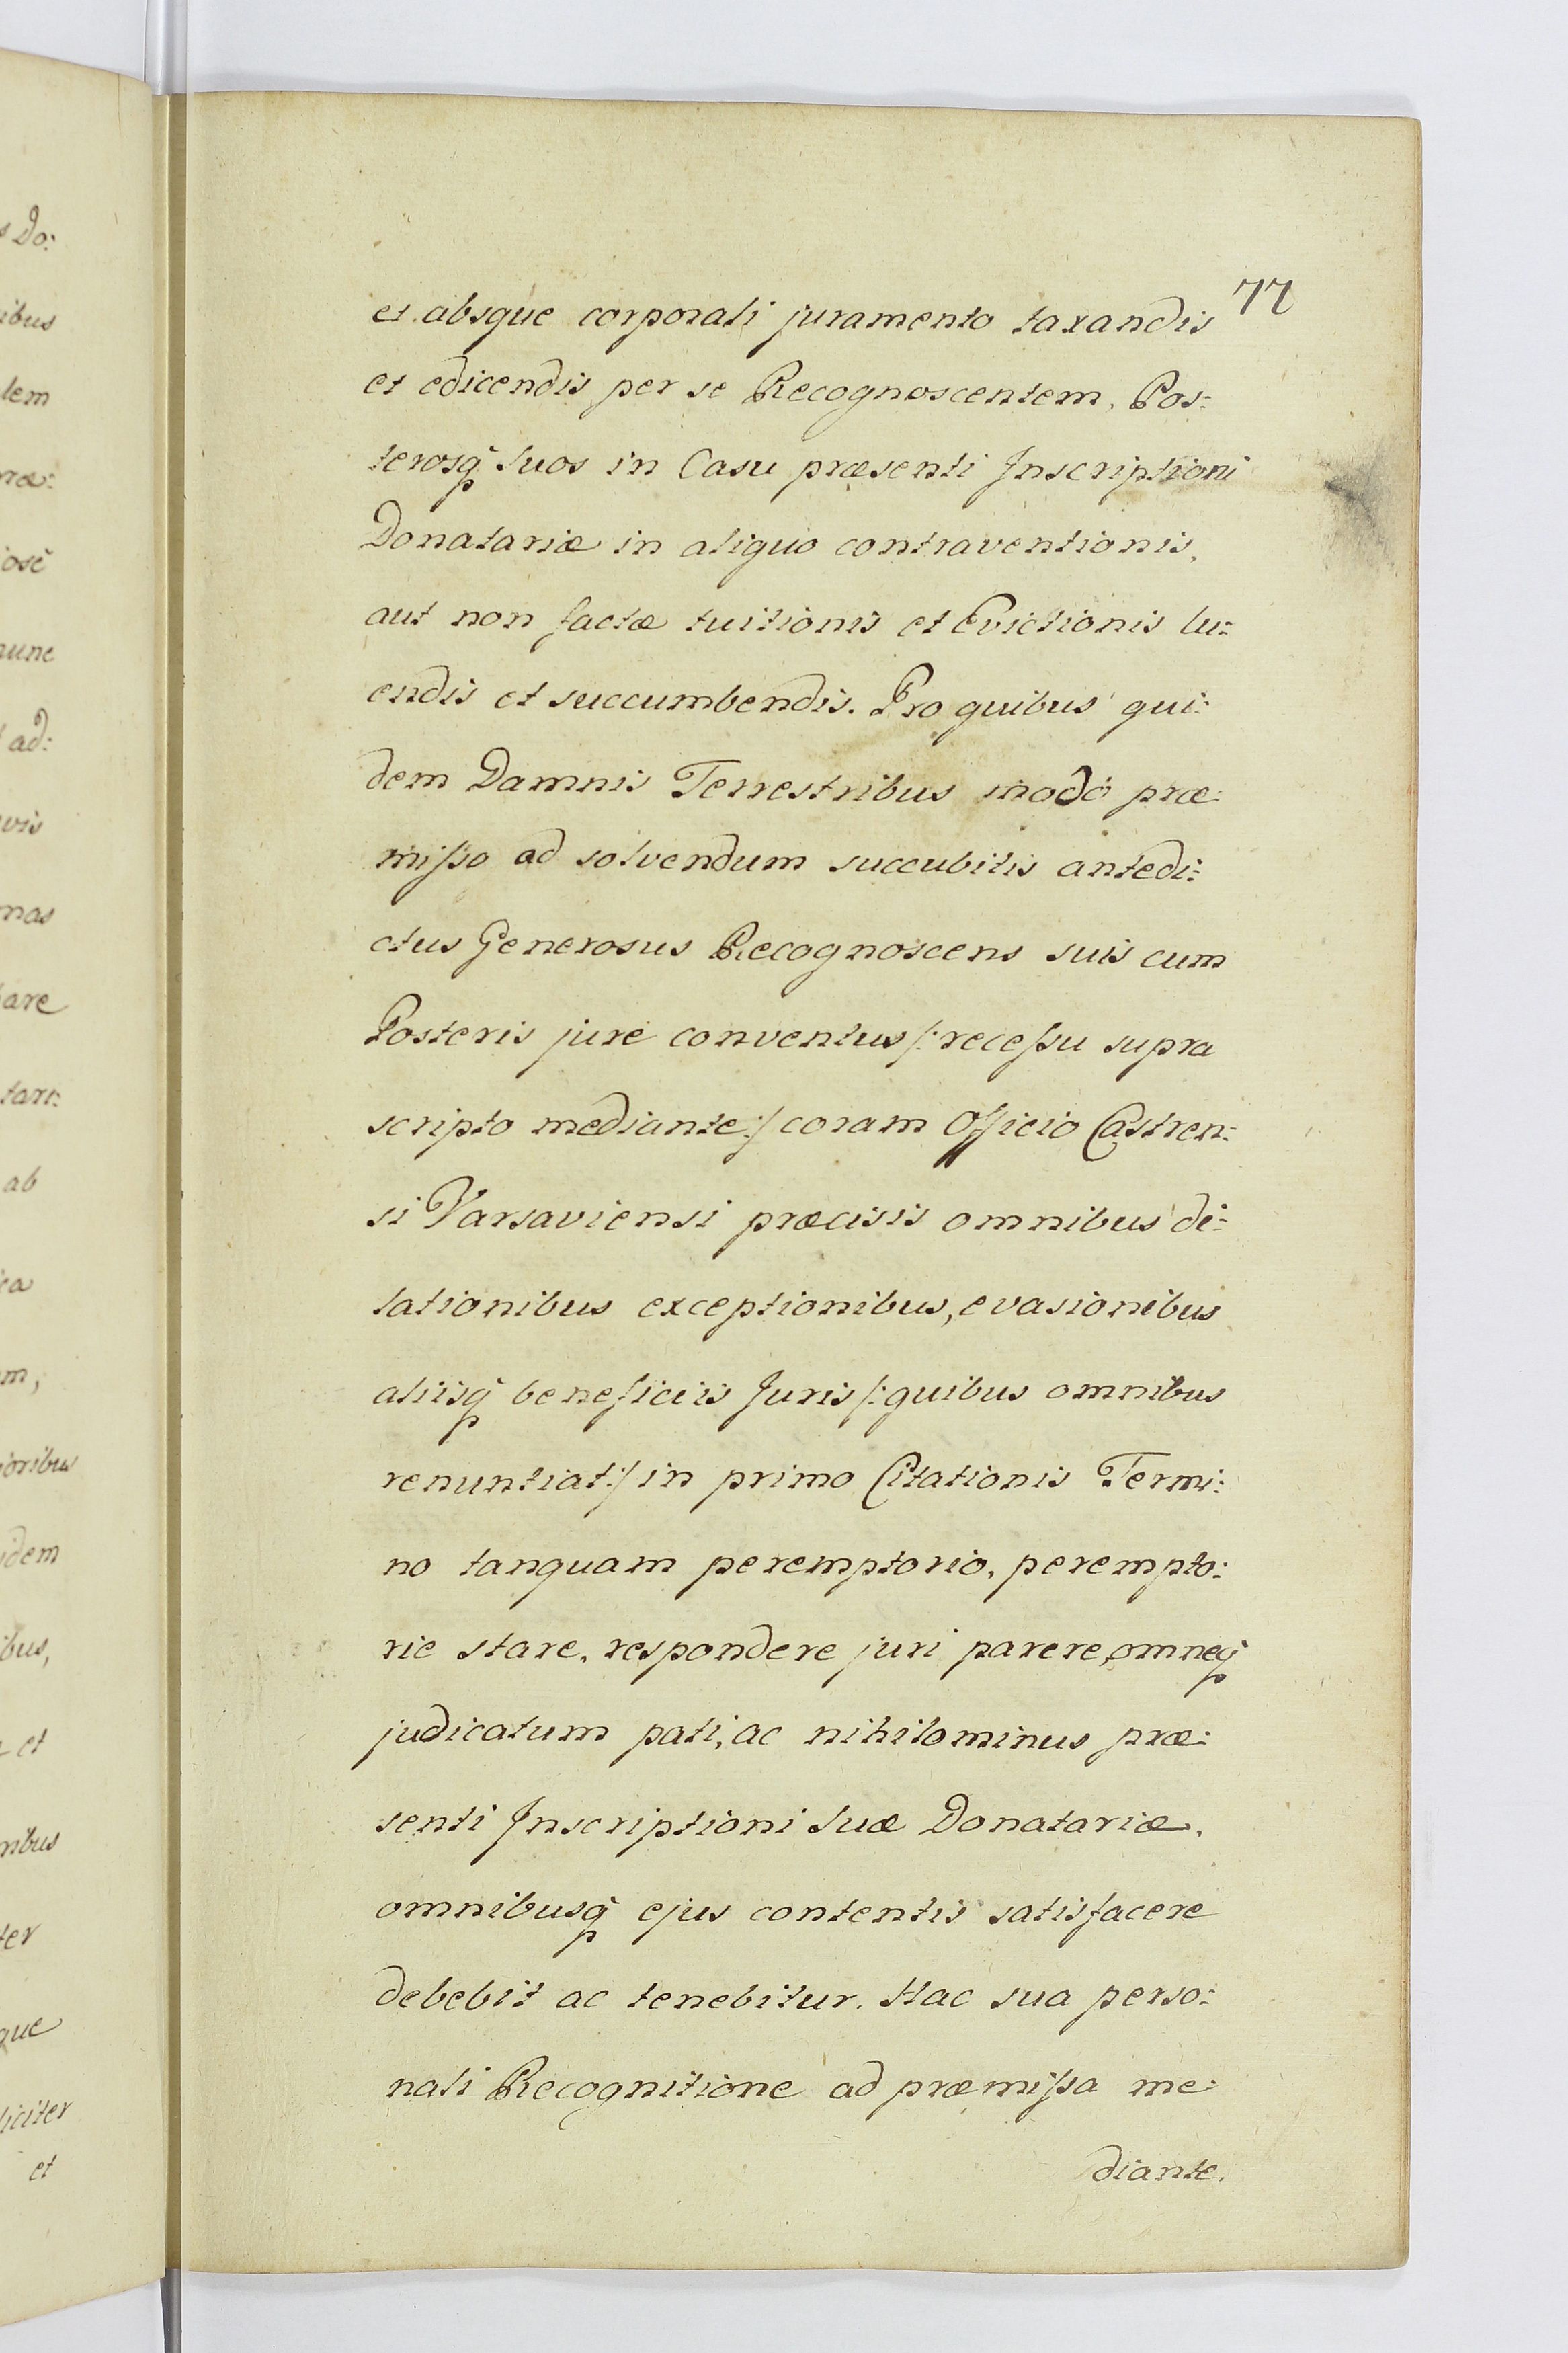 77
et absque corporali juramento taxandis
et edicendis per se Recognoscentem, Pos:
terosq̃ Suos in Casu præsenti Inscriptioni
Donatariæ in aliquo contraventionis,
aut non factæ tuitionis et Evictionis lu:
endis et succumbendis. Pro quibus qui:
dem Damnis Terrestribus modo præ:
misso ad solvendum succubitis antedi:
ctus Generosus Recognoscens suis cum
Posteris jure conventus /: recessu supra
scripto mediante :/ coram Officio Castren:
si Varsaviensi præcisis omnibus di:
lationibus exceptionibus, evasionibus
aliisq̃ beneficiis Juris /: quibus omnibus
renuntiat :/ in primo Citationis Termi:
no tanquam peremptorio, perempto:
rie stare, respondere juri parere, omneq̃
judicatum pati, ac nihilominus præ:
senti Inscriptioni Suæ Donatariæ,
omnibusq̃ ejus contentis satisfacere
debebit ac tenebitur. Hac sua perso:
nali Recognitione ad præmissa me:
diante.